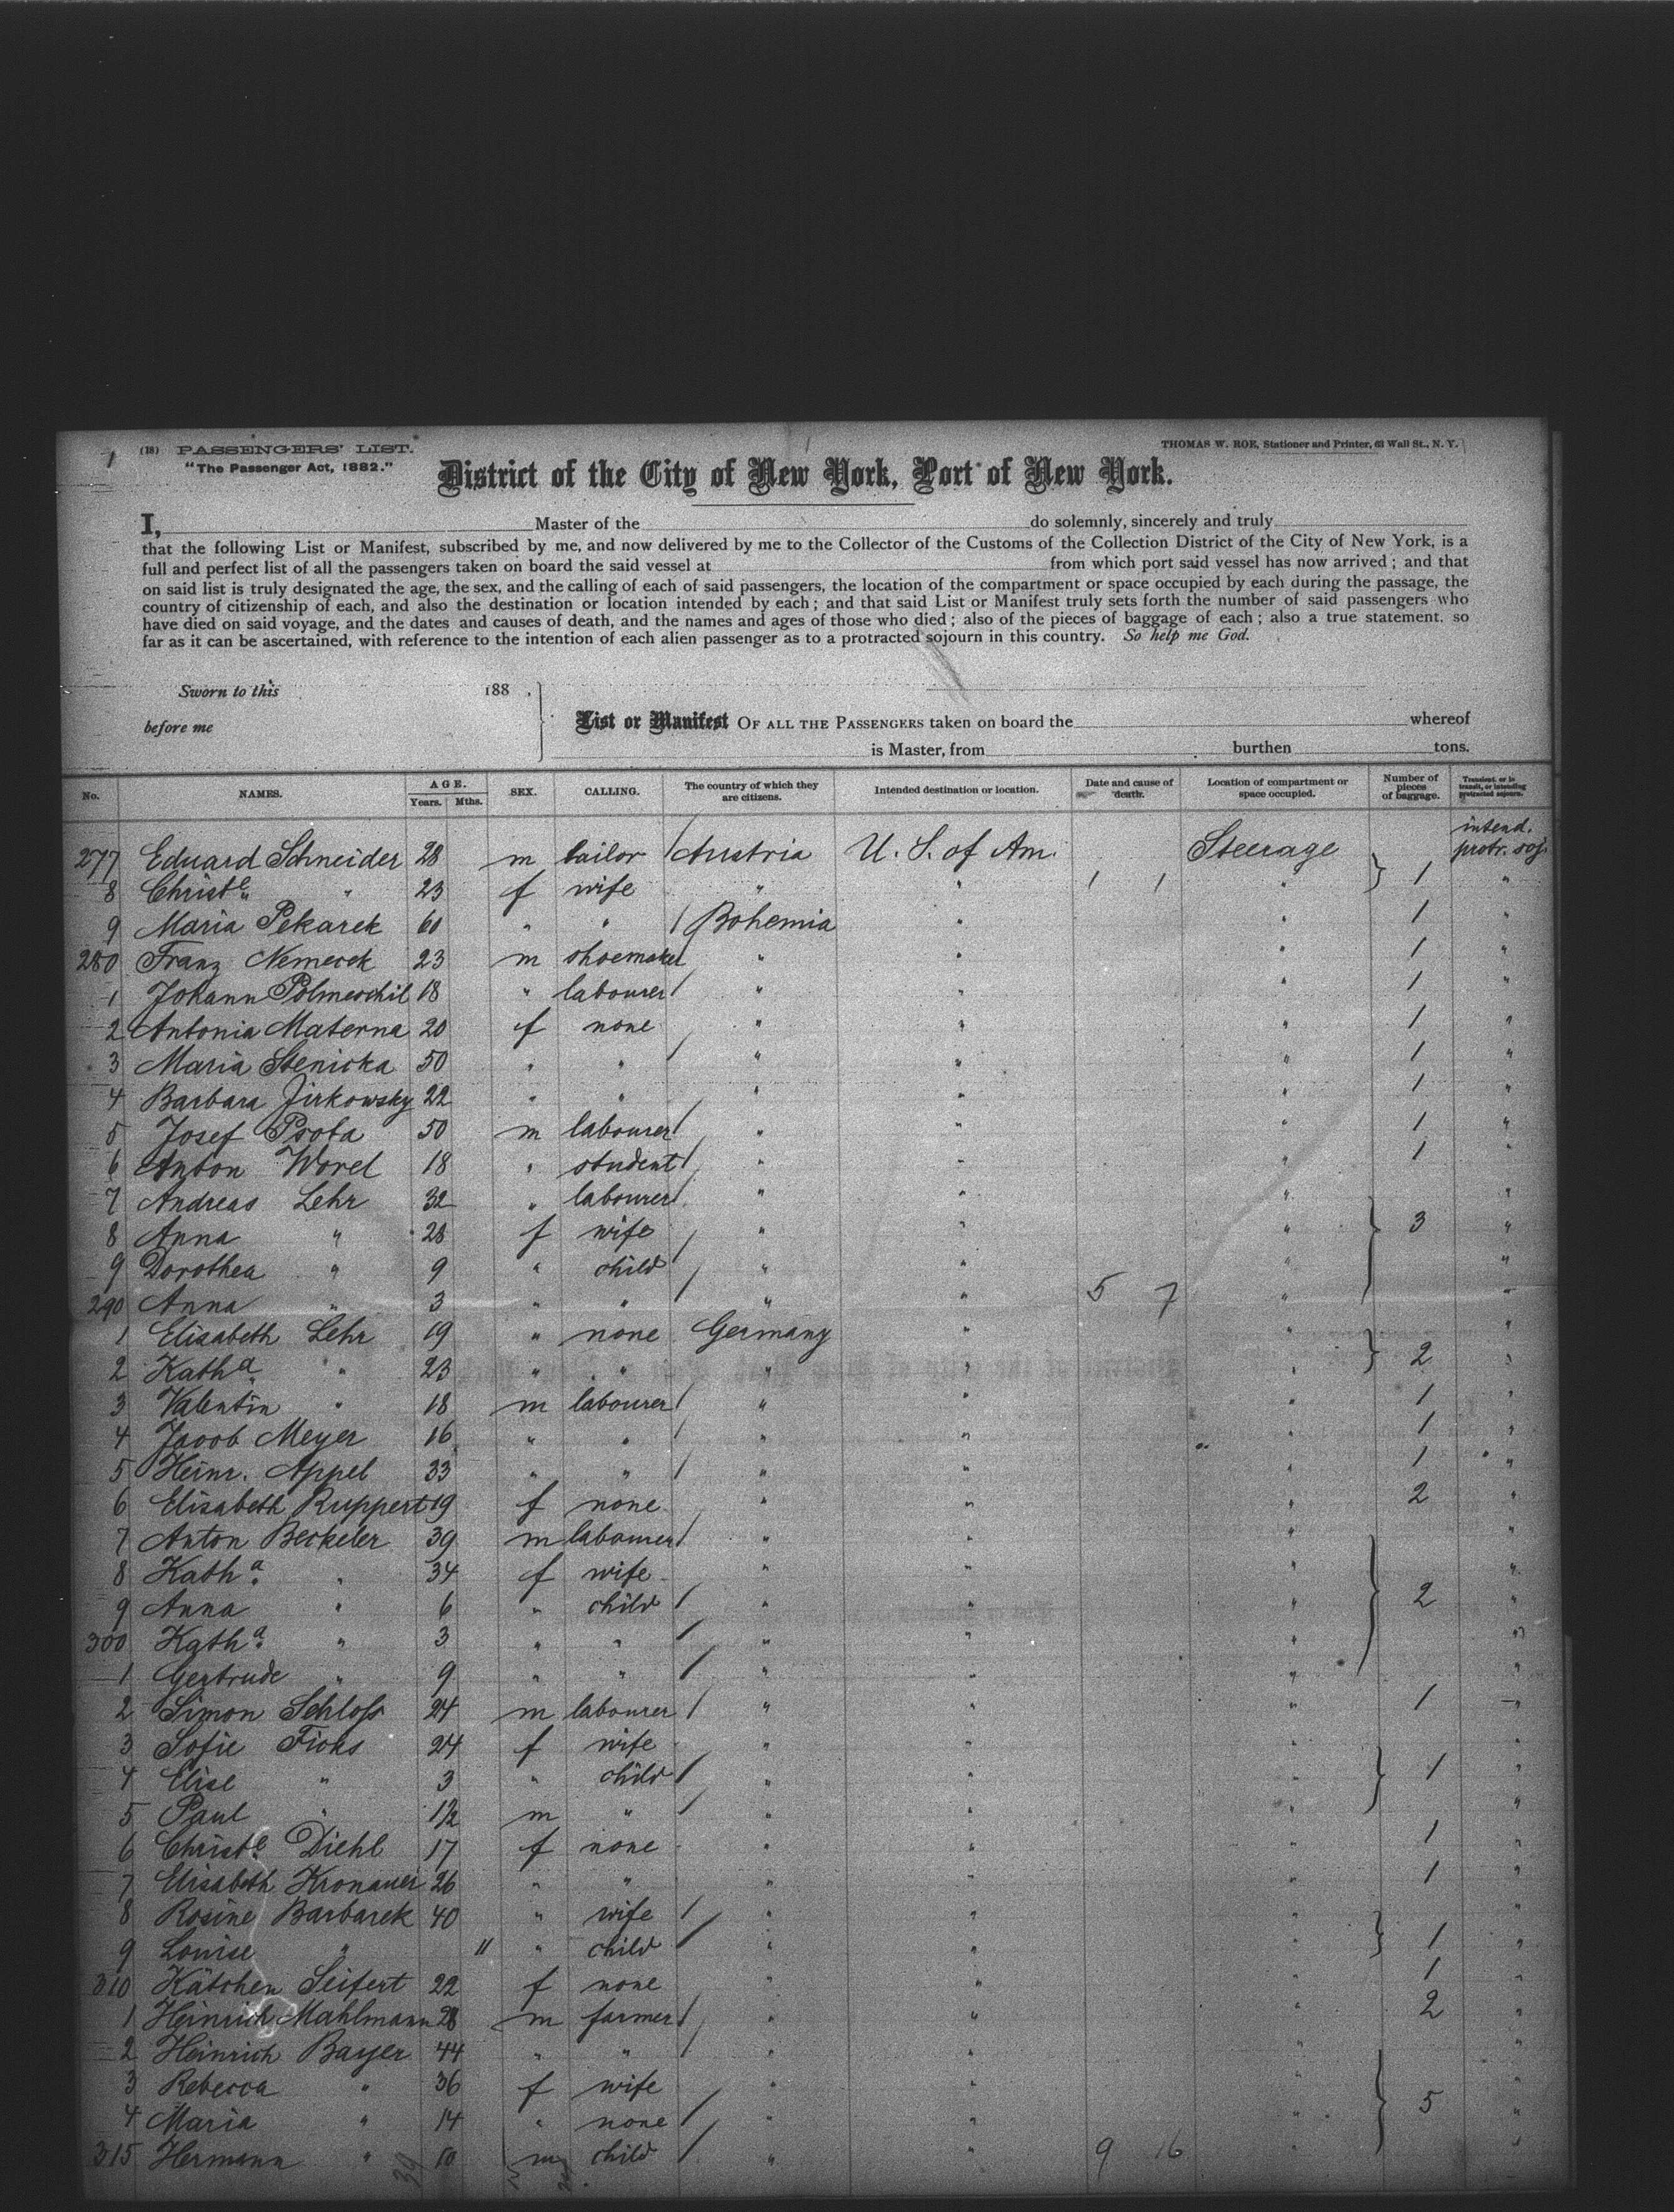 (18) PASSENGERS' LIST.
THOMAS W. ROE, Stationer and Printer, 63 Wall St., N. Y.
"The Passenger Act, 1882."
District of the City of New York, Port of New York.
I, Master of the do solemnly, sincerely and truly
that the following List or Manifest, subscribed by me, and now delivered by me to the Collector of the Customs of the Collection District of the City of New York, is a
full and perfect list of all the passengers taken on board the said vessel at from which port said vessel has now arrived; and that
on said list is truly designated the age, the sex, and the calling of each of said passengers, the location of the compartment or space occupied by each during the passage, the
country of citizenship of each, and also the destination or location intended by each; and that said List or Manifest truly sets forth the number of said passengers who
have died on said voyage, and the dates and causes of death, and the names and ages of those who died; also of the pieces of baggage of each; also a true statement, so
far as it can be ascertained, with reference to the intention of each alien passenger as to a protracted sojourn in this country. So help me God.
Sworn to this 188 .
before me
List or Manifest OF ALL THE PASSENGERS taken on board the whereof
is Master, from burthen tons.
No. NAMES. AGE. Years. Mths. SEX. CALLING. The country of which they are citizens. Intended destination or location. Date and cause of death. Location of compartment or space occupied. Number of pieces of baggage. Transient, or in transit, or intending protracted sojourn.
277 Eduard Schneider 28 m tailor / Austria U. S. of Am. Steerage intend. protr. soj.
8 Christe " 23 f wife " " 1 1 " } 1 "
9 Maria Pekarek 60 " " / Bohemia " " 1 "
280 Franz Nemecek 23 m shoemaker " " " 1 "
1 Johann 18 " labourer / " " " 1 "
2 Antonia Materna 20 f none " " " 1 "
3 Maria Stenicka 50 " " / " " " 1 "
4 Barbara Jirkowsky 22 " " " " " 1 "
5 Josef Prota 50 m labourer / " " " 1 "
6 Anton Worel 18 " student / " " " 1 "
7 Andreas Lehr 32 " labourer / " " " "
8 Anna " 28 f wife " " " } 3 "
9 Dorothea " 9 " child / " " " "
290 Anna " 3 " " / " " 5 7 " "
1 Elisabeth Lehr 19 " none Germany " " "
2 Katha " 23 " " " " " } 2 "
3 Valentin " 18 m labourer / " " " 1 "
4 Jacob Meyer 16 " " / " " " 1 "
5 Heinr. Appel 33 " " / " " " 1 "
6 Elisabeth Ruppert 19 f none " " " 2 "
7 Anton Beckeler 39 m labourer / " " " "
8 Katha " 34 f wife " " " "
9 Anna " 6 " child / " " " } 2 "
300 Katha " 3 " " / " " " "
1 Gertrude " 9 " " / " " " "
2 Simon Schloss 24 m labourer / " " " 1 "
3 Sofie Ficks 24 f wife " " " "
4 Elise " 3 " child / " " " } 1 "
5 Paul " 1½ m " / " " " "
6 Christe Diehl 17 f none " " " 1 "
7 Elisabeth Kronauer 26 " " " " " 1 "
8 Rosine Barbarek 40 " wife / " " " "
9 Louise " 11 " child / " " " } 1 "
310 Kätchen Seifert 22 f none " " " 1 "
1 Heinrich Mahlmann 28 m farmer / " " " 2 "
2 Heinrich Bayer 44 " " / " " " "
3 Rebecca " 36 f wife " " " "
4 Maria " 14 " none / " " " } 5 "
315 Hermann " 10 m child / " " 9 16 " "
39